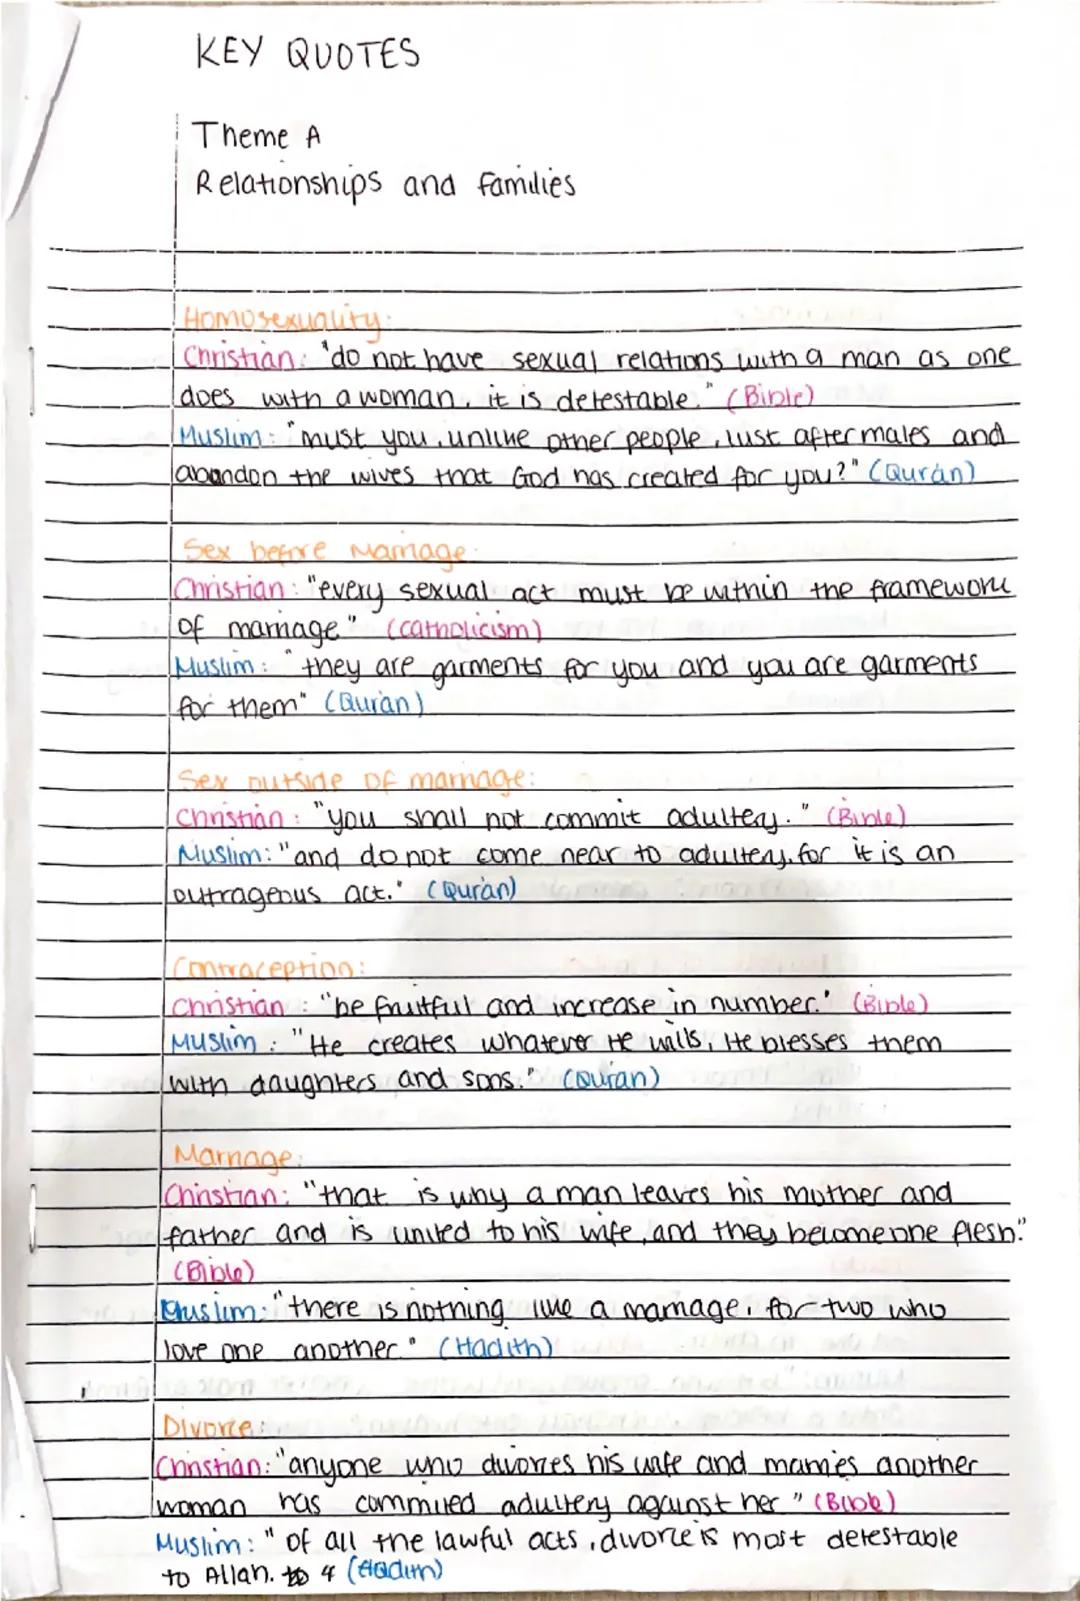 KEY QUOTES
Theme A
Relationships and families
Homosexuality:
Christian: "do not have sexual relations with a man as one
does with a woman, it is detestable." (Bible)
Muslim: "must you, unlike other people, lust after males and
abandon the wives that God has created for you?" (Quran)
Sex before Marriage:
Christian: "every sexual act must be within the framework
of marriage" (catholicism)
Muslim: "they are garments for you and you are garments
for them" (Quran)
Sex outside of marriage:
Christian: "you shall not commit adultery." (Bible)
Muslim: "and do not come near to adultery, for it is an
outrageous act." (Quran)
Contraception:
Christian: "be fruitful and increase in number." (Bible)
Muslim: "He creates whatever He wills, He blesses them
with daughters and sons." (Quran)
Marriage:
Christian: "that is why a man leaves his mother and
father and is united to his wife, and they become one flesh."
(Bible)
Muslim: "there is nothing like a marriage, for two who
love one another." (Hadith)
Divorce:
Christian: "anyone who divorces his wife and marries another
woman has commited adultery against her" (Bible)
Muslim: "of all the lawful acts, divorce is most detestable
to Allah. (Hadith)